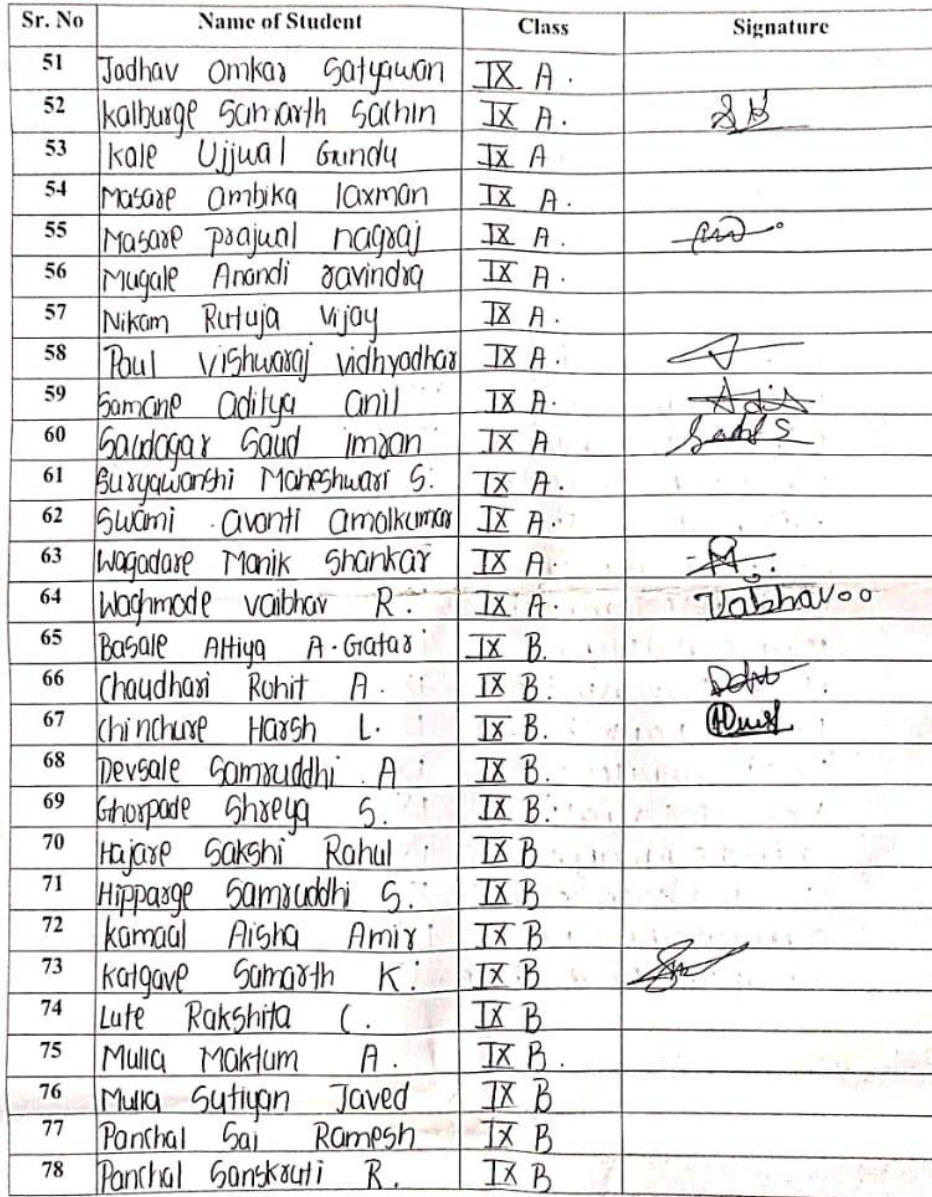 Sr. No Name of Student Class Signature
51 Jadhav Omkar Satyawan IX A.
52 Kalburge Samarth Sachin IX A. SK
53 Kale Ujjwal Gundu IX A
54 Masare ambika laxman IX A.
55 Masare prajwal nagraj IX A.
56 Mugale Anandi ravindra IX A.
57 Nikam Rutuja Vijay IX A.
58 Paul Vishwaraj vidhyadhar IX A.
59 Samane aditya anil IX A.
60 Saudagar Saud imran IX A
61 Suryawanshi Maheshwari S. IX A.
62 Swami avanti amolkumar IX A.
63 Wagadare Manik Shankar IX A.
64 Waghmode vaibhav R. IX A. Vabhavoo
65 Basale Attiya A. Gafar IX B.
66 Chaudhari Rohit A. IX B.
67 Chinchure Harsh L. IX B.
68 Devsale Samruddhi A IX B.
69 Ghorpade Shreya S. IX B.
70 Hajare Sakshi Rahul IX B
71 Hipparge Samruddhi S. IX B
72 Kamaal Aisha Amir IX B
73 Katgave Samarth K. IX B
74 Lute Rakshita C. IX B
75 Mulla Maktum A. IX B.
76 Mulla Sufiyan Javed IX B
77 Panchal Sai Ramesh IX B
78 Panchal Sanskruti R. IX B